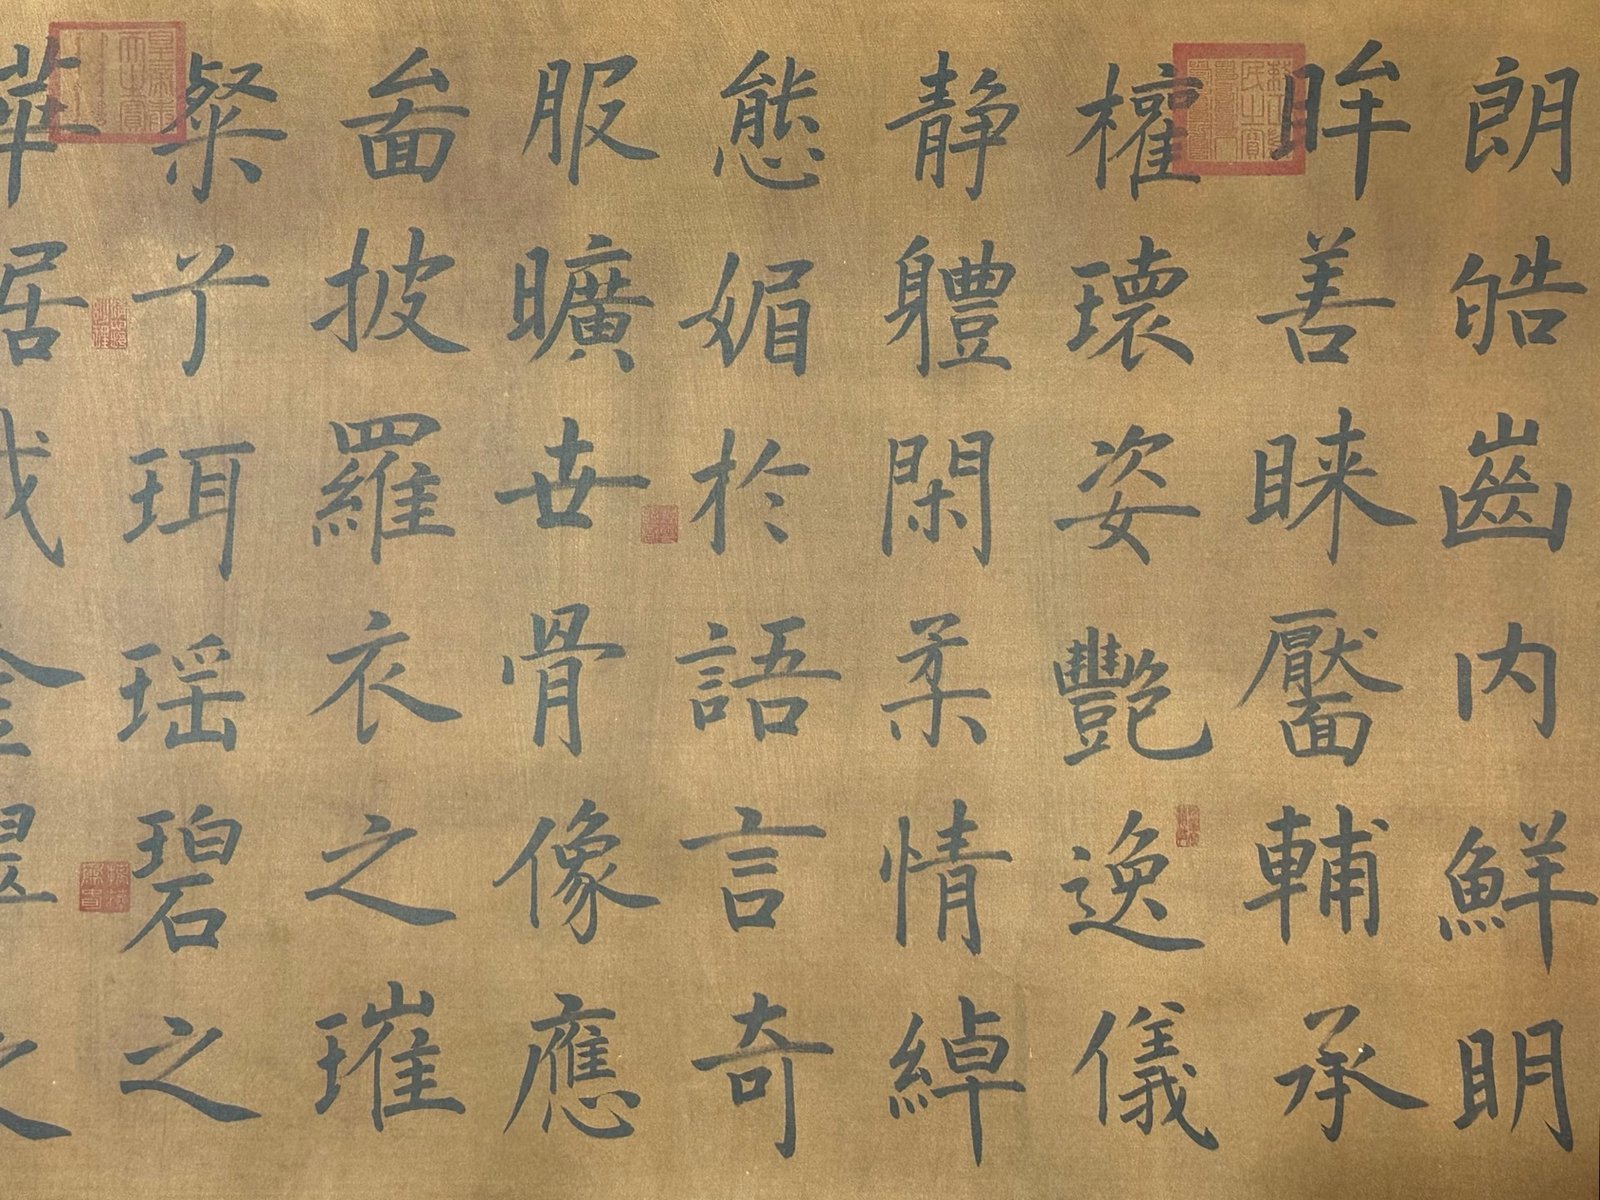 朗皓齒内鮮明
眸善睞靨輔承
權瓌姿艷逸儀
静軆閑柔情綽
態媚於語言奇
服曠世骨像應
啚披羅衣之璀
粲兮珥瑶碧之
華琚戴金翠之